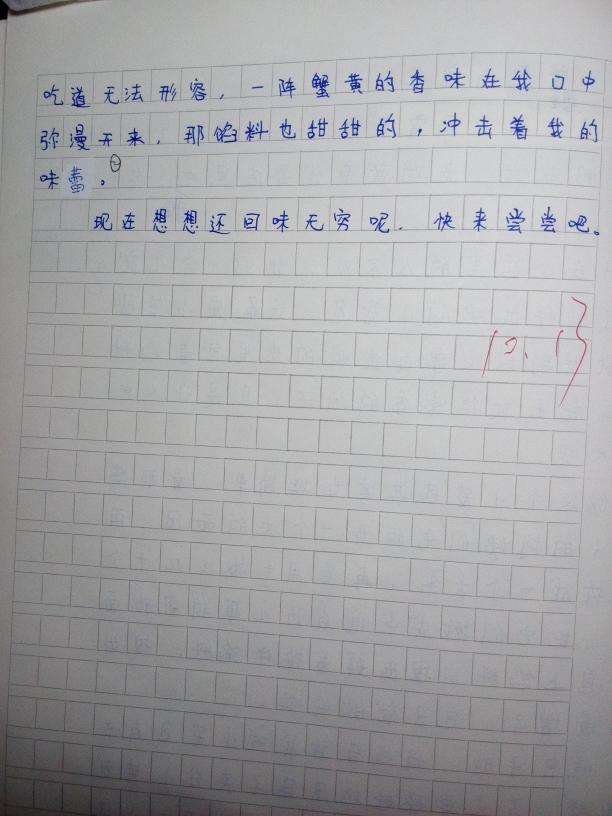 吃道无法形容，一阵蟹黄的香味在我口中
弥漫开来，那馅料也甜甜的，冲击着我的
味蕾。
现在想想还回味无穷呢，快来尝尝吧。
10.13